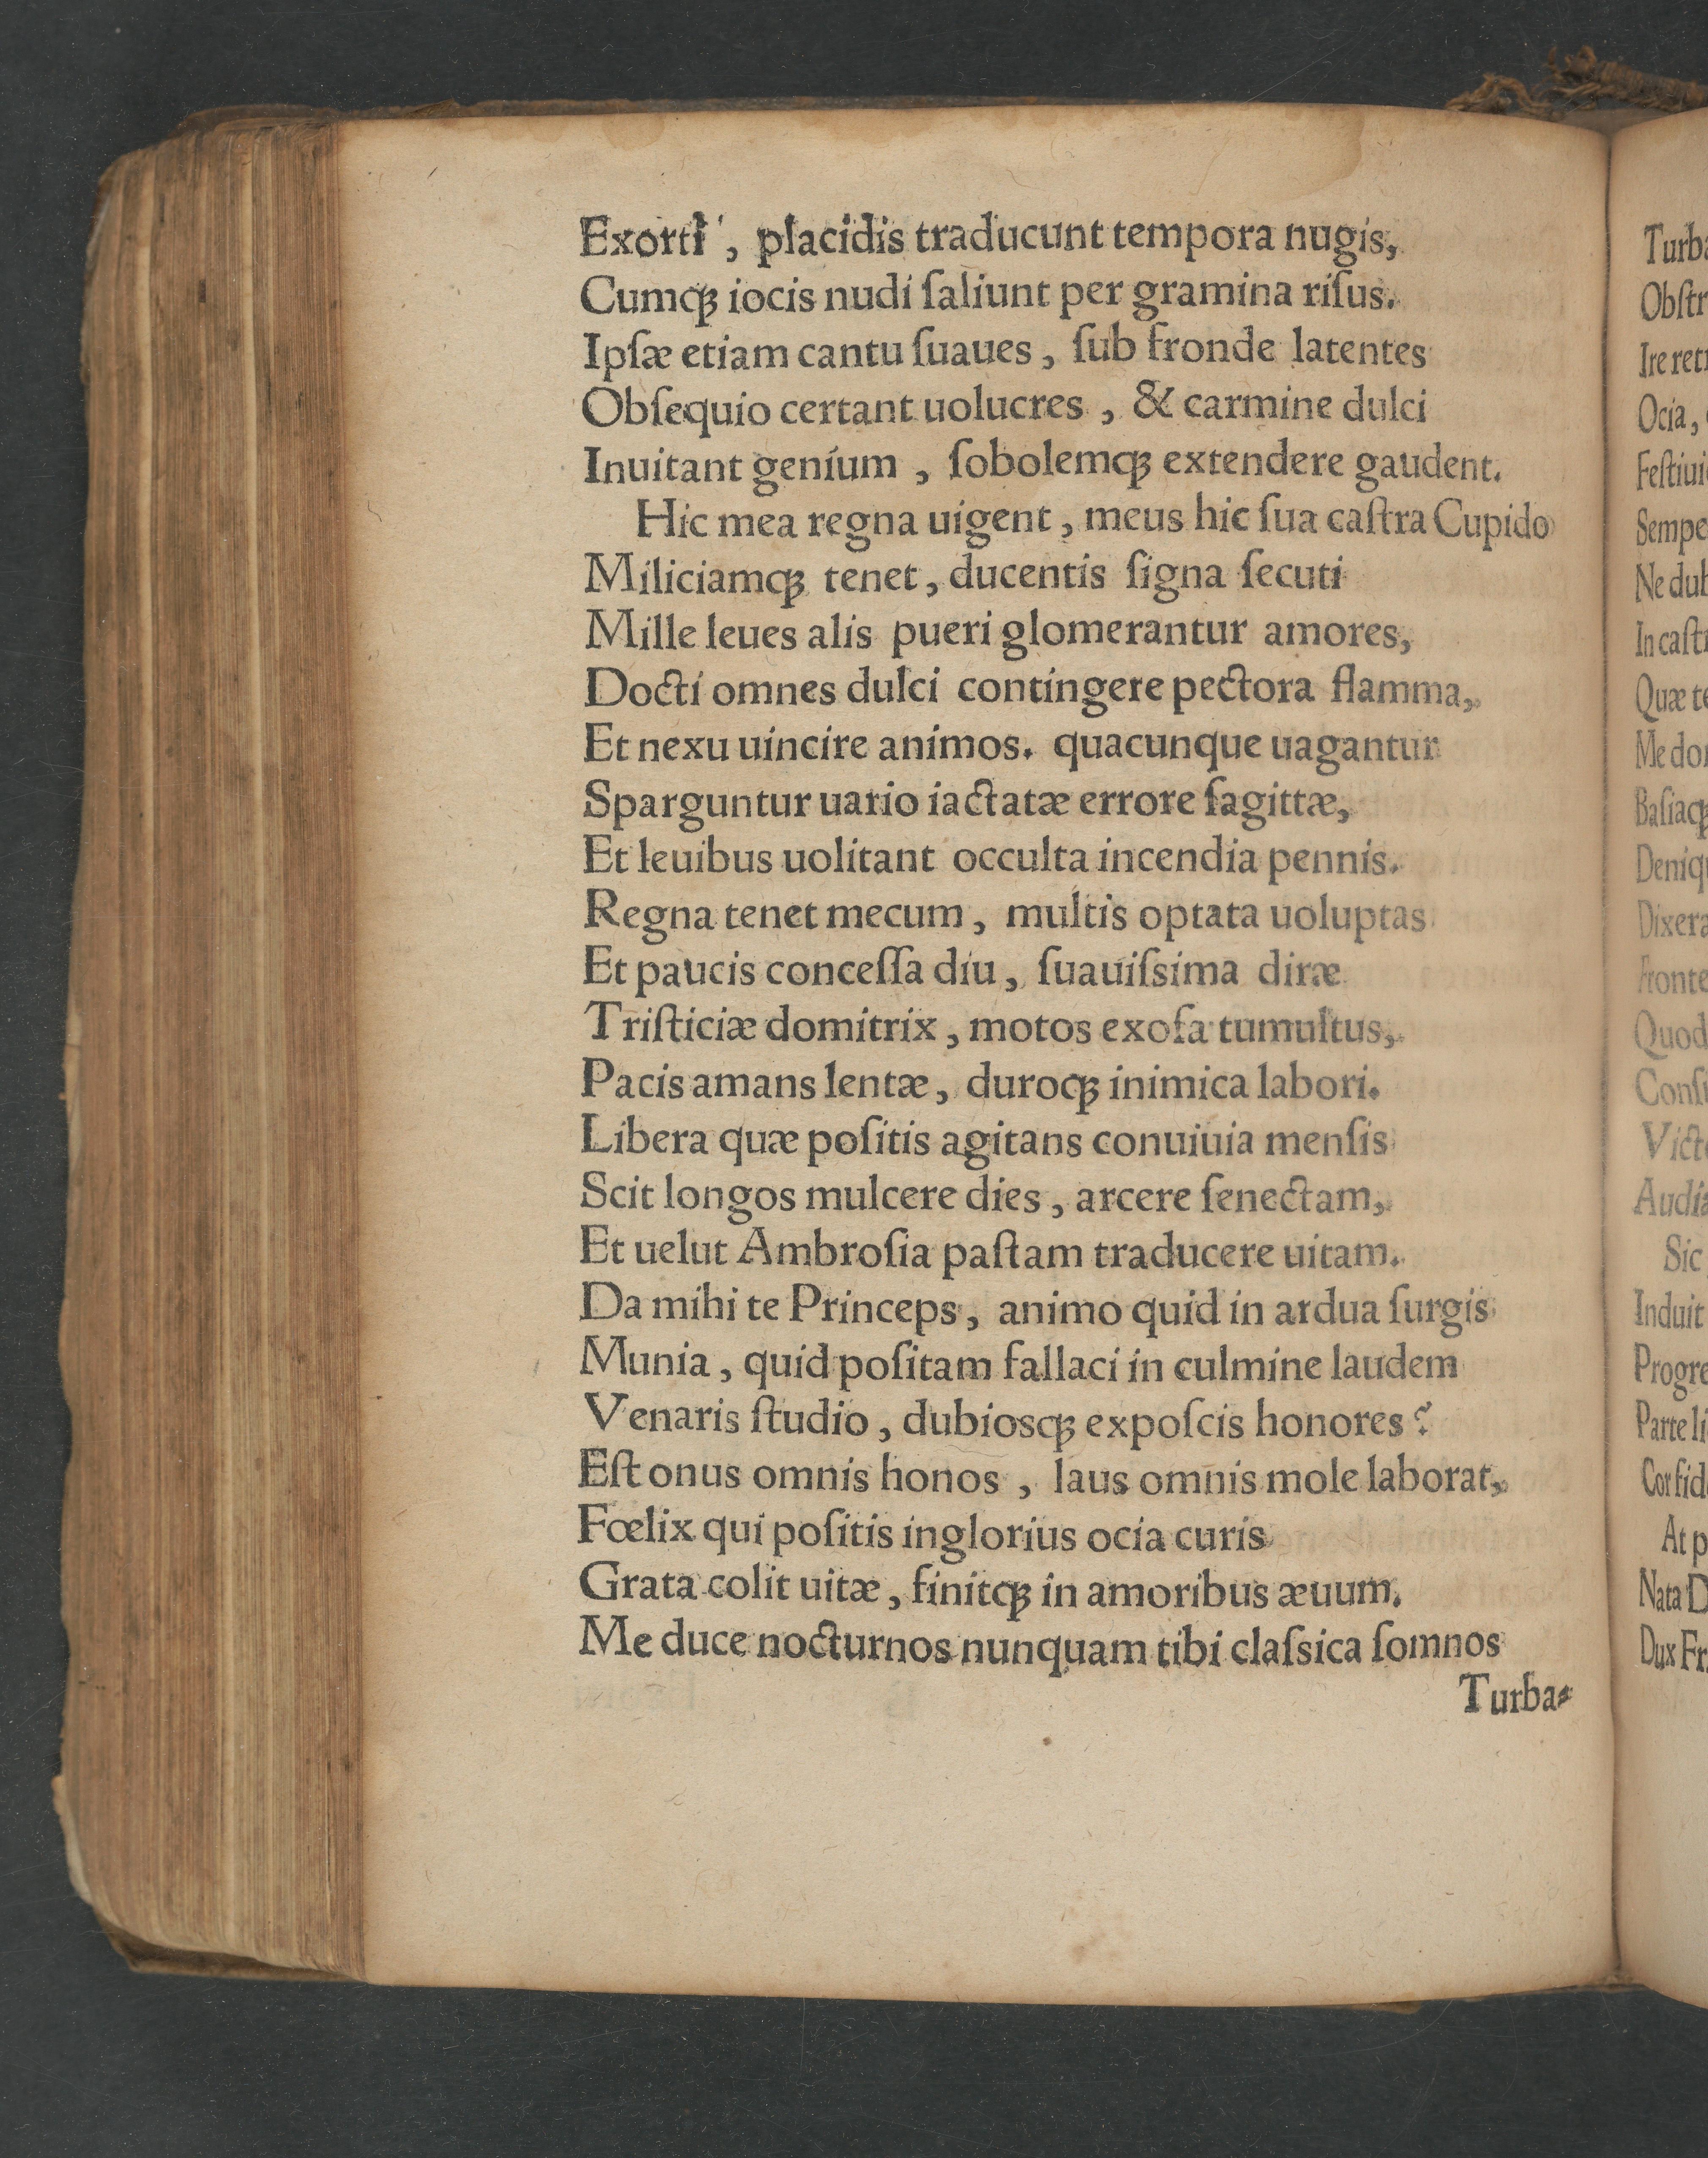 Exorti, placidis traducunt tempora nugis,
Cumqꝫ iocis nudi ſaliunt per gramina riſus.
Ipſæ etiam cantu ſuaues, ſub fronde latentes
Obſequio certant uolucres, & carmine dulci
Inuitant genium, ſobolemqꝫ extendere gaudent.
Hic mea regna uigent, meus hic ſua caſtra Cupido
Miliciamqꝫ tenet, ducentis ſigna ſecuti
Mille leues alis pueri glomerantur amores,
Docti omnes dulci contingere pectora flamma,
Et nexu uincire animos. quacunque uagantur
Sparguntur uario iactatæ errore ſagittæ,
Et leuibus uolitant occulta incendia pennis.
Regna tenet mecum, multis optata uoluptas
Et paucis conceſſa diu, ſuauiſsima diræ
Triſticiæ domitrix, motos exoſa tumultus,
Pacis amans lentæ, duroqꝫ inimica labori.
Libera quæ poſitis agitans conuiuia menſis
Scit longos mulcere dies, arcere ſenectam,
Et uelut Ambroſia paſtam traducere uitam.
Da mihi te Princeps, animo quid in ardua ſurgis
Munia, quid poſitam fallaci in culmine laudem
Venaris ſtudio, dubiosqꝫ expoſcis honores?
Eſt onus omnis honos, laus omnis mole laborat,
Fœlix qui poſitis inglorius ocia curis
Grata colit uitæ, finitqꝫ in amoribus æuum.
Me duce nocturnos nunquam tibi claſsica ſomnos
Turba-
Turba
Obſtr
Ire retr
Ocia,
Feſtiui
Sempe
Ne dub
In caſtr
Quæ te
Me do
Baſiaqꝫ
Deniq
Dixera
Fronte
Quod
Conſu
Victo
Audia
Sic
Induit
Progre
Parte li
Cor fid
At p
Nata D
Dux Fr